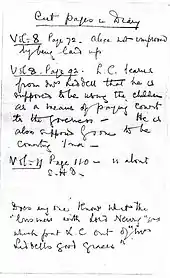 Cut pages in Diary
Vol. 8 Page 72 - Alice not improved
by being laid up
Vol 8. Page 92. L.C. learns
from Mrs Liddell that he is
supposed to be using the children
as a means of paying court
to the governess - He is
also supposed
to be
courting Ina -
Vol. 11 Page 110 - is about
Does anyone know what the
"business with Lord Newry" was
which put L C out of "Mrs
Liddell's good graces"?